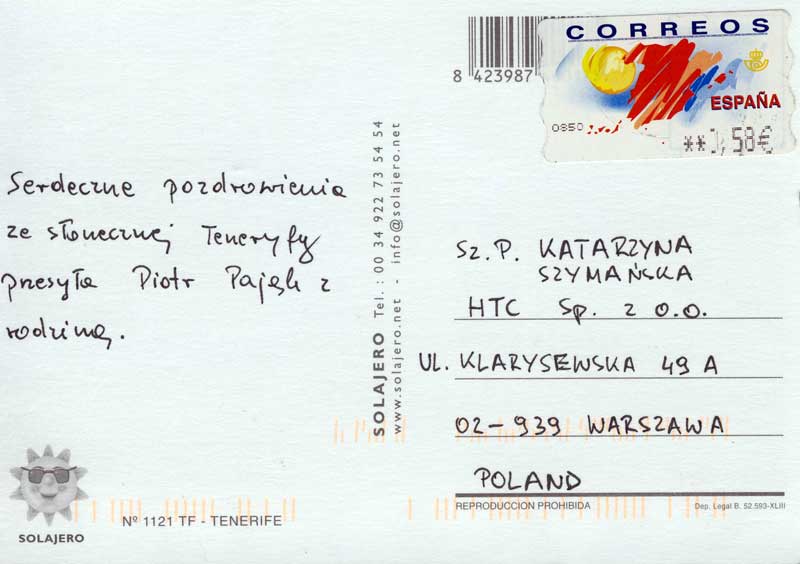 CORREOS
ESPAÑA
0850
**0,58€
8 423987
Serdeczne pozdrowienia
ze słonecznej Teneryfy
przesyła Piotr Pająk z
rodziną.
SOLAJERO Tel.: 00 34 922 73 54 54
www.solajero.net - info@solajero.net
Sz.P. KATARZYNA
SZYMAŃSKA
HTC Sp. z o.o.
UL. KLARYSEWSKA 49 A
02-939 WARSZAWA
POLAND
REPRODUCCION PROHIBIDA
Dep. Legal B. 52.593-XLIII
SOLAJERO
Nº 1121 TF - TENERIFE